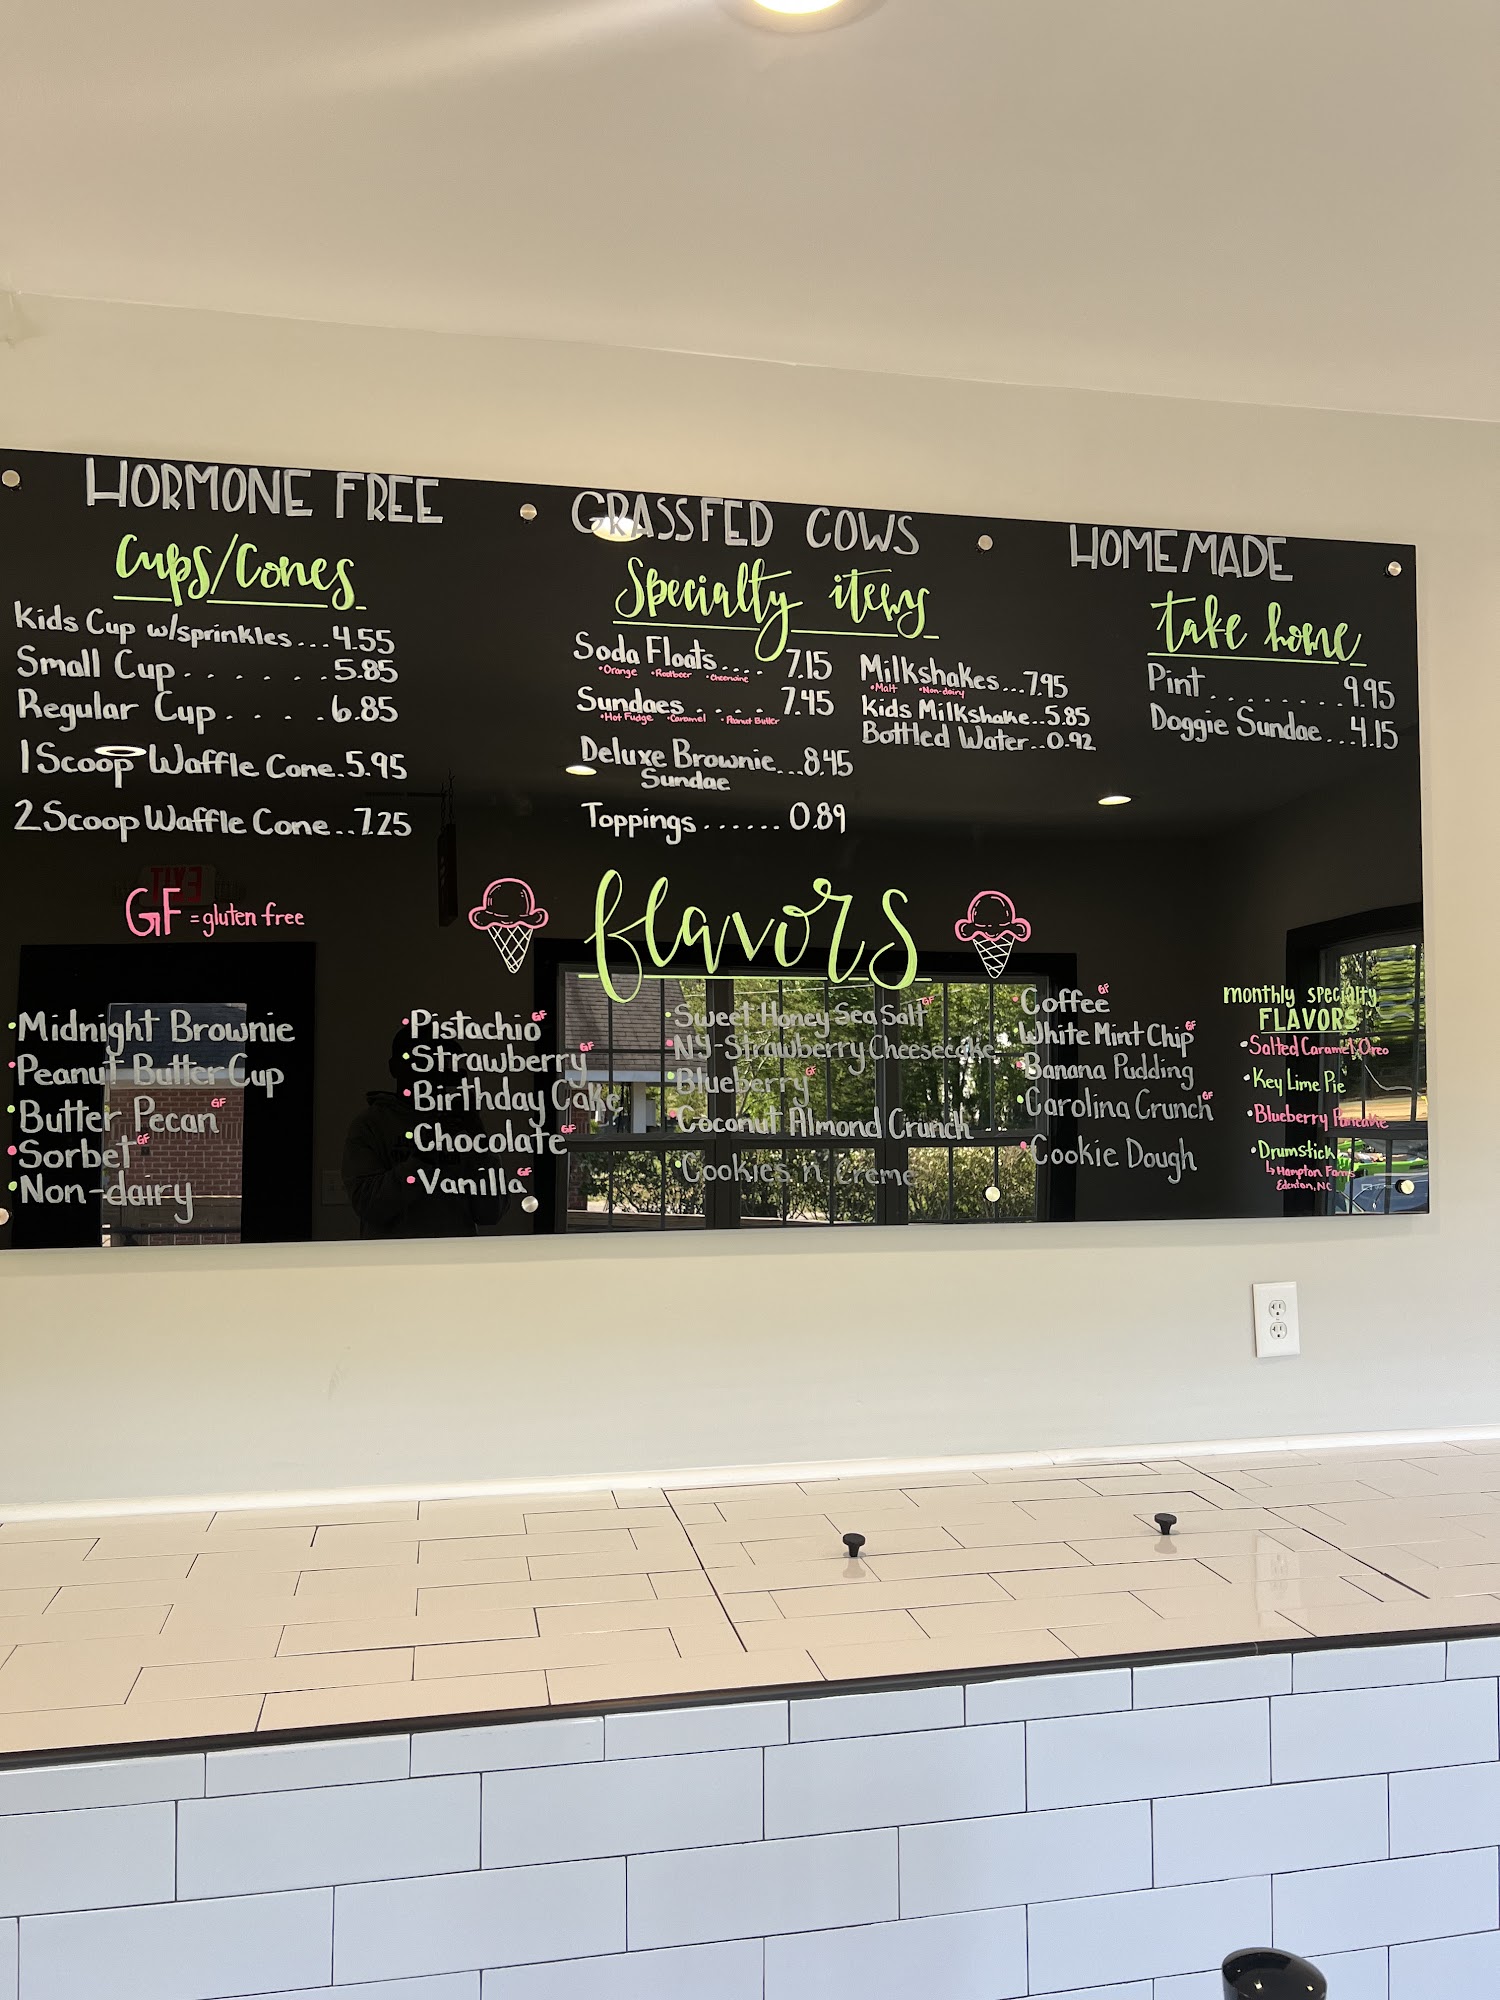 HORMONE FREE
GRASSFED COWS
HOMEMADE
Cups/Cones
Kids Cup w/sprinkles...4.55
Small Cup.......5.85
Regular Cup.....6.85
1 Scoop Waffle Cone.5.95
2 Scoop Waffle Cone..7.25
Specialty items
Soda Floats.... 7.15
•Orange •Rootbeer •Cheerwine
Sundaes ..... 7.45
•Hot Fudge •Caramel •Peanut Butter
Deluxe Brownie...8.45
Sundae
Toppings...... 0.89
Milkshakes...7.95
•Malt •Non-dairy
Kids Milkshake..5.85
Bottled Water..0.92
take home
Pint........9.95
Doggie Sundae...4.15
GF =gluten free
flavors
•Midnight Brownie
•Peanut Butter Cup
•Butter Pecan GF
•Sorbet GF
•Non-dairy
•Pistachio GF
•Strawberry GF
•Birthday Cake
•Chocolate GF
•Vanilla GF
•Sweet Honey Sea Salt GF
•NY-Strawberry Cheesecake
•Blueberry GF
•Coconut Almond Crunch
•Cookies n Creme
•Coffee GF
•White Mint Chip GF
•Banana Pudding
•Carolina Crunch GF
•Cookie Dough
monthly specialty
FLAVORS
•Salted Caramel Oreo
•Key Lime Pie
•Blueberry Pancake
•Drumstick
↳Hampton Farms
Edenton, NC
EXIT